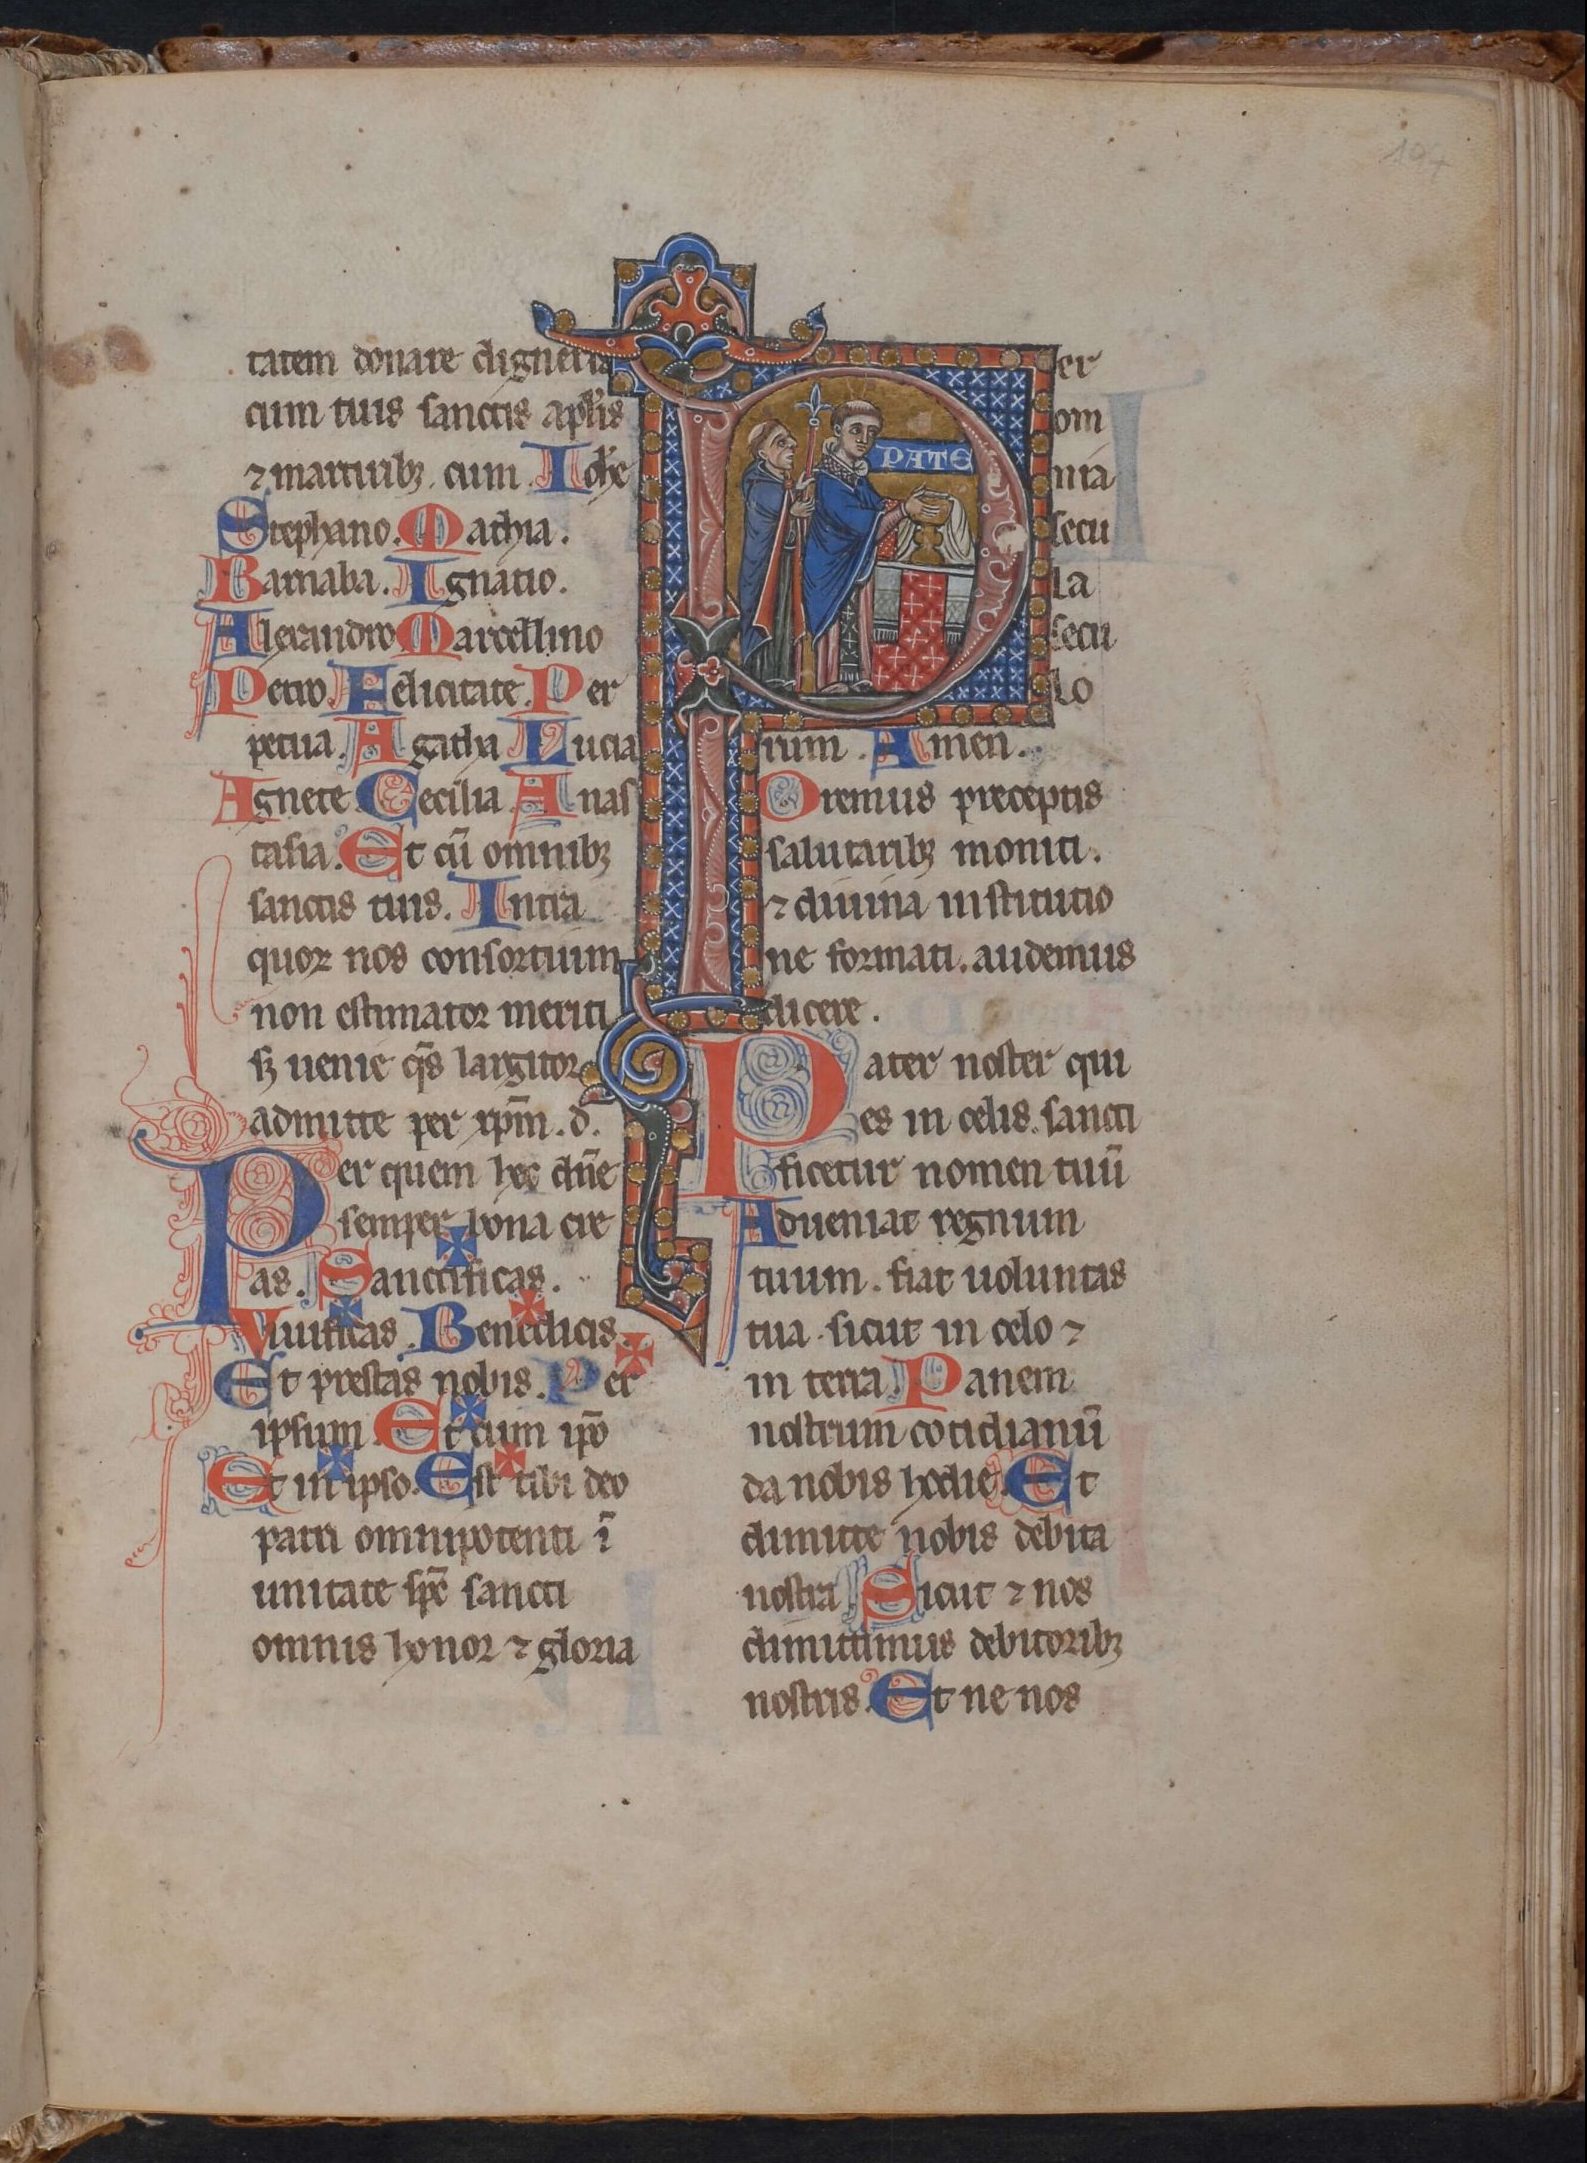 194
tatem donare digneris
cum tuis sanctis aplis
⁊ martiribꝫ. cum. Iohe
Stephano. Mathia.
Barnaba. Ignatio.
Alexandro Marcellino
Petro. Felicitate. Per
petua. Agatha Lucia
Agnete Cecilia Anas
tasia. Et cū omnibꝫ
sanctis tuis. Intra
quoꝝ nos consortium
non estimator meriti
sꝫ uenie q̄s largitor
admitte per xp̄m. d.
Per quem hec dn̄e
semper bona cre
as. Sanctificas.
Viuificas. Benedicis.
Et prestas nobis. Per
ipsum. Et cum ip̄o
Et in ipso. Est tibi deo
patri omnipotenti ī
unitate sp̄c sancti
omnis honor ⁊ gloria
PATE
Per
om
nia
secu
la
secu
lo
rum. Amen.
Oremus preceptis
salutaribꝫ moniti.
⁊ diuina institutio
ne formati. audemus
dicere.
Pater noster qui
es in celis. sancti
ficetur nomen tuū
Adueniat regnum
tuum. fiat uoluntas
tua. sicut in celo ⁊
in terra. Panem
nostrum cotidianū
da nobis hodie. Et
dimitte nobis debita
nostra. Sicut ⁊ nos
dimittimus debitoribꝫ
nostris. Et ne nos